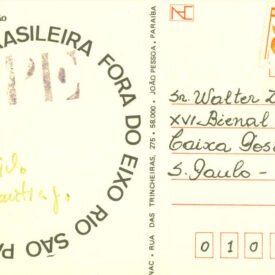 ÃO
BRASILEIRA FORA DO EIXO RIO SÃO PA
PE
NAC - RUA DAS TRINCHEIRAS, 275 - 58.000 - JOÃO PESSOA, PARAÍBA
Sr. Walter Z
XVI Bienal
Caixa Pos
S. Paulo -
0 1 0